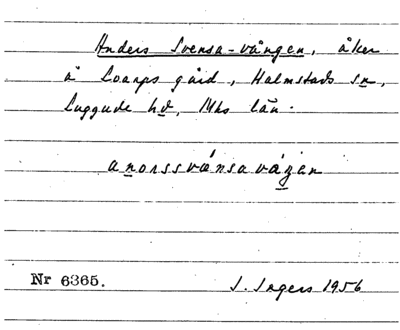 Anders Svensa-vången, åker
å Loarps gård, Halmstads sn,
Luggude hd, Mhs län.
anorssvánsavázan
Nr 6365.
J. Sagers 1956